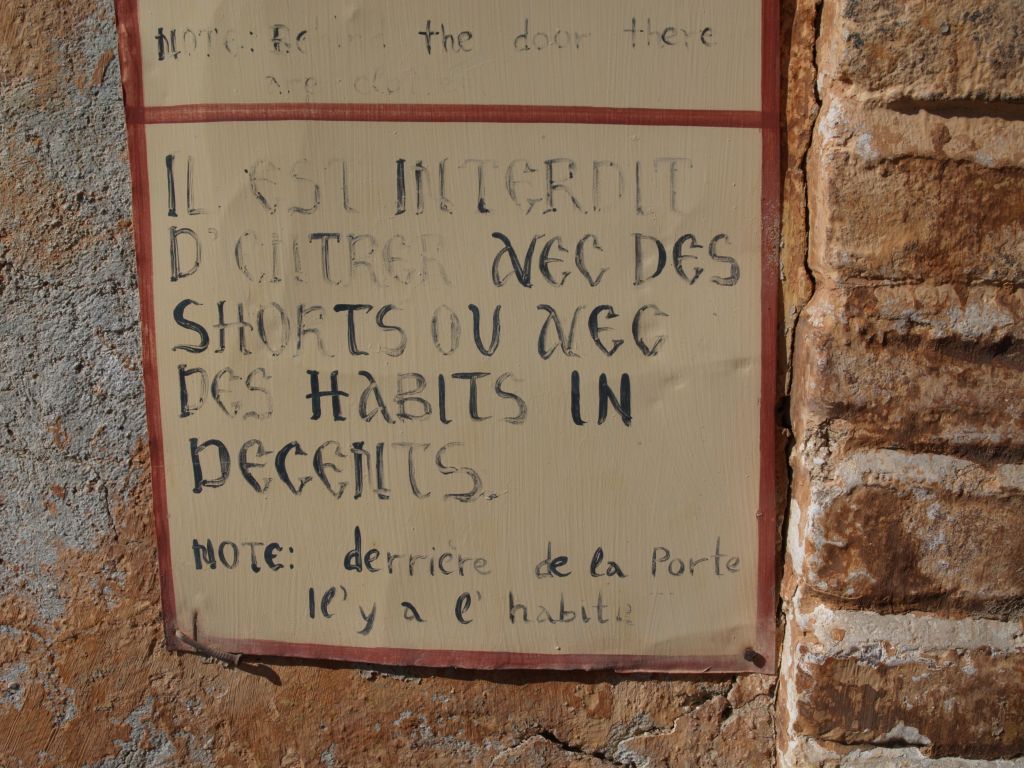 NOTE: Behind the door there
are clothes
IL EST INTERDIT
D'ENTRER AVEC DES
SHORTS OU AVEC
DES HABITS IN
DECENTS.
NOTE: derrière de la Porte
Il' y a l' habit